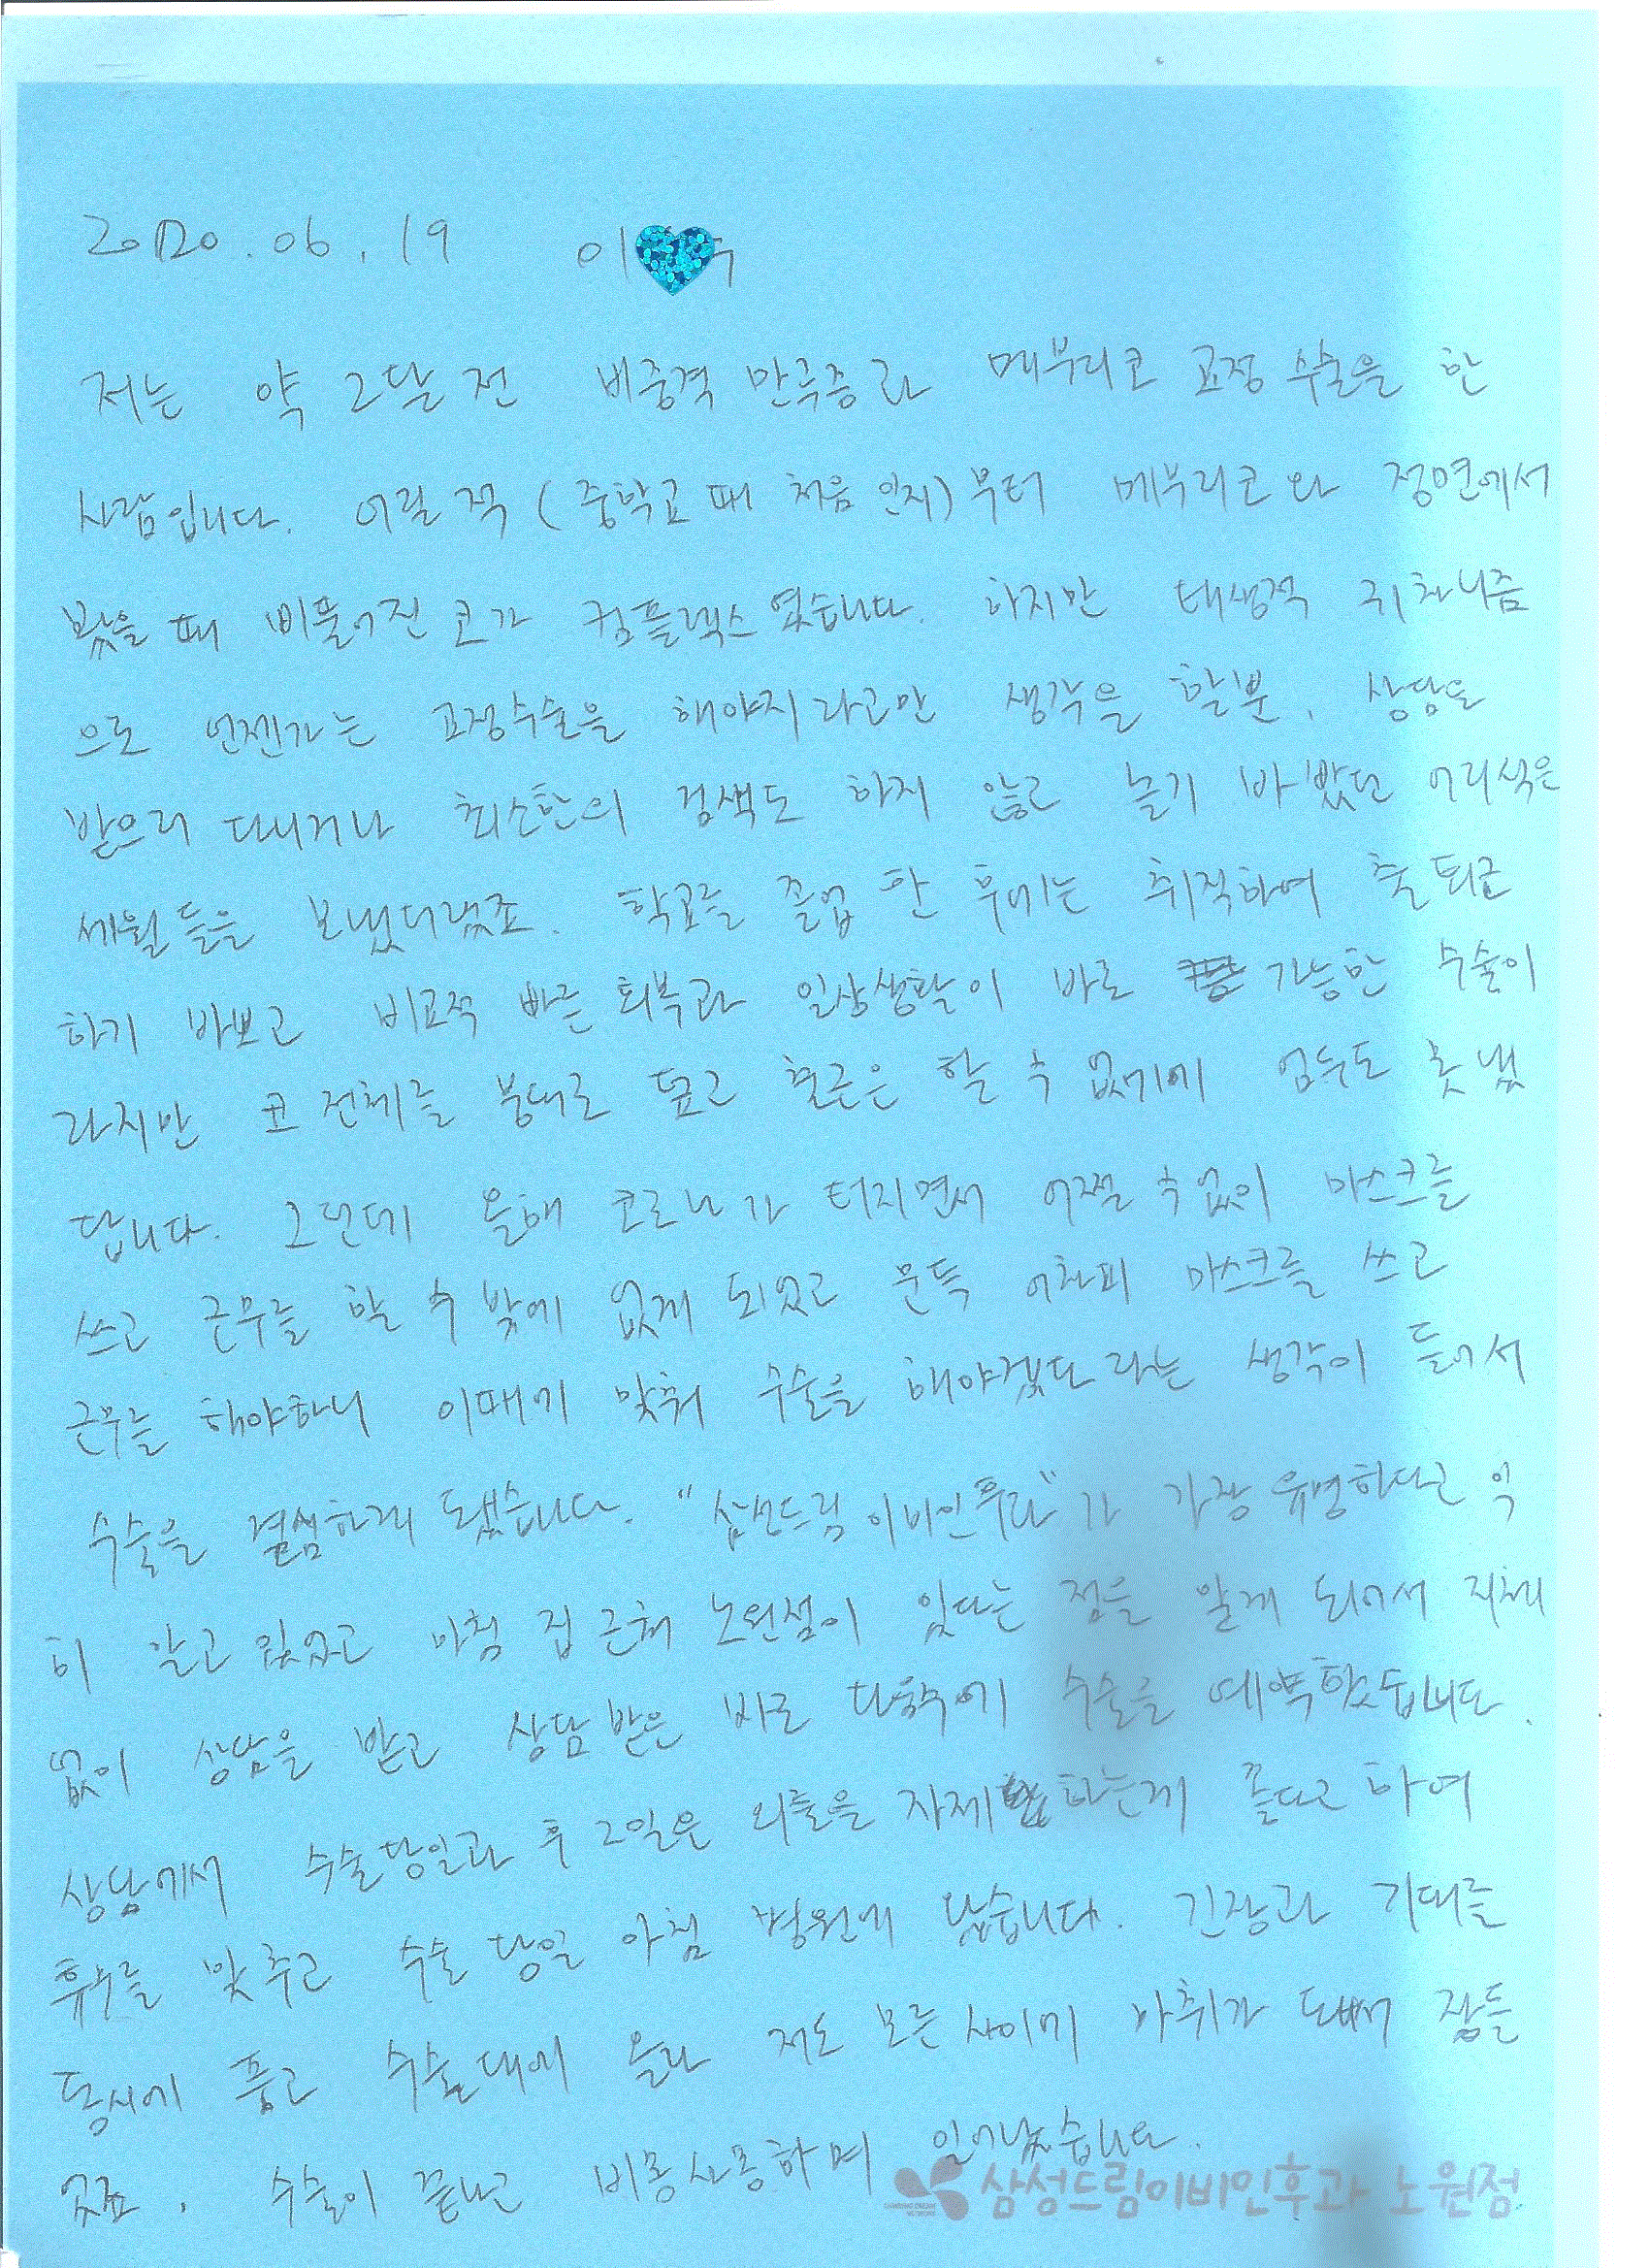 2020.06.19 이
저는 약 2달 전 비중격 만곡증과 메부리코 교정 수술을 한
사람입니다. 어릴 적 (중학교때 처음 인지)부터 메부리코와 정면에서
봤을 때 삐뚤어진 코가 컴플렉스였습니다. 하지만 태생적 귀차니즘
으로 언젠가는 교정수술을 해야지라고만 생각을 할뿐, 상담을
받으러 다니거나 최소한의 검색도 하지 않고 놀기 바빴던 어리석은
세월들을 보냈더랬죠. 학교를 졸업 한 후에는 취직하여 출퇴근
하기 바쁘고 비교적 빠른 회복과 일상생활이 바로 가능한 수술이
라지만 코 전체를 붕대로 덮고 출근은 할 수 없기에 엄두도 못 냈
답니다. 그런데 올해 코로나가 터지면서 어쩔 수 없이 마스크를
쓰고 근무를 할 수 밖에 없게 되었고 문득 어차피 마스크를 쓰고
근무를 해야하니 이때에 맞춰 수술을 해야겠다라는 생각이 들어서
수술을 결심하게 됐습니다. "삼성드림이비인후과"가 가장 유명하다고 익
히 알고 있었고 마침 집 근처 노원점이 있다는 점을 알게 되어서 지체
없이 상담을 받고 상담받은 바로 다음주에 수술을 예약했습니다.
상담에서 수술당일과 후 2일은 외출을 자제하는게 좋다고 하여
휴무를 맞추고 수술 당일 아침 병원에 갔습니다. 긴장과 기대를
동시에 품고 수술대에 올라 저도 모른 사이에 마취가 돼서 잠들
었죠. 수술이 끝나고 비몽사몽하며 일어났습니다.
삼성드림이비인후과 노원점